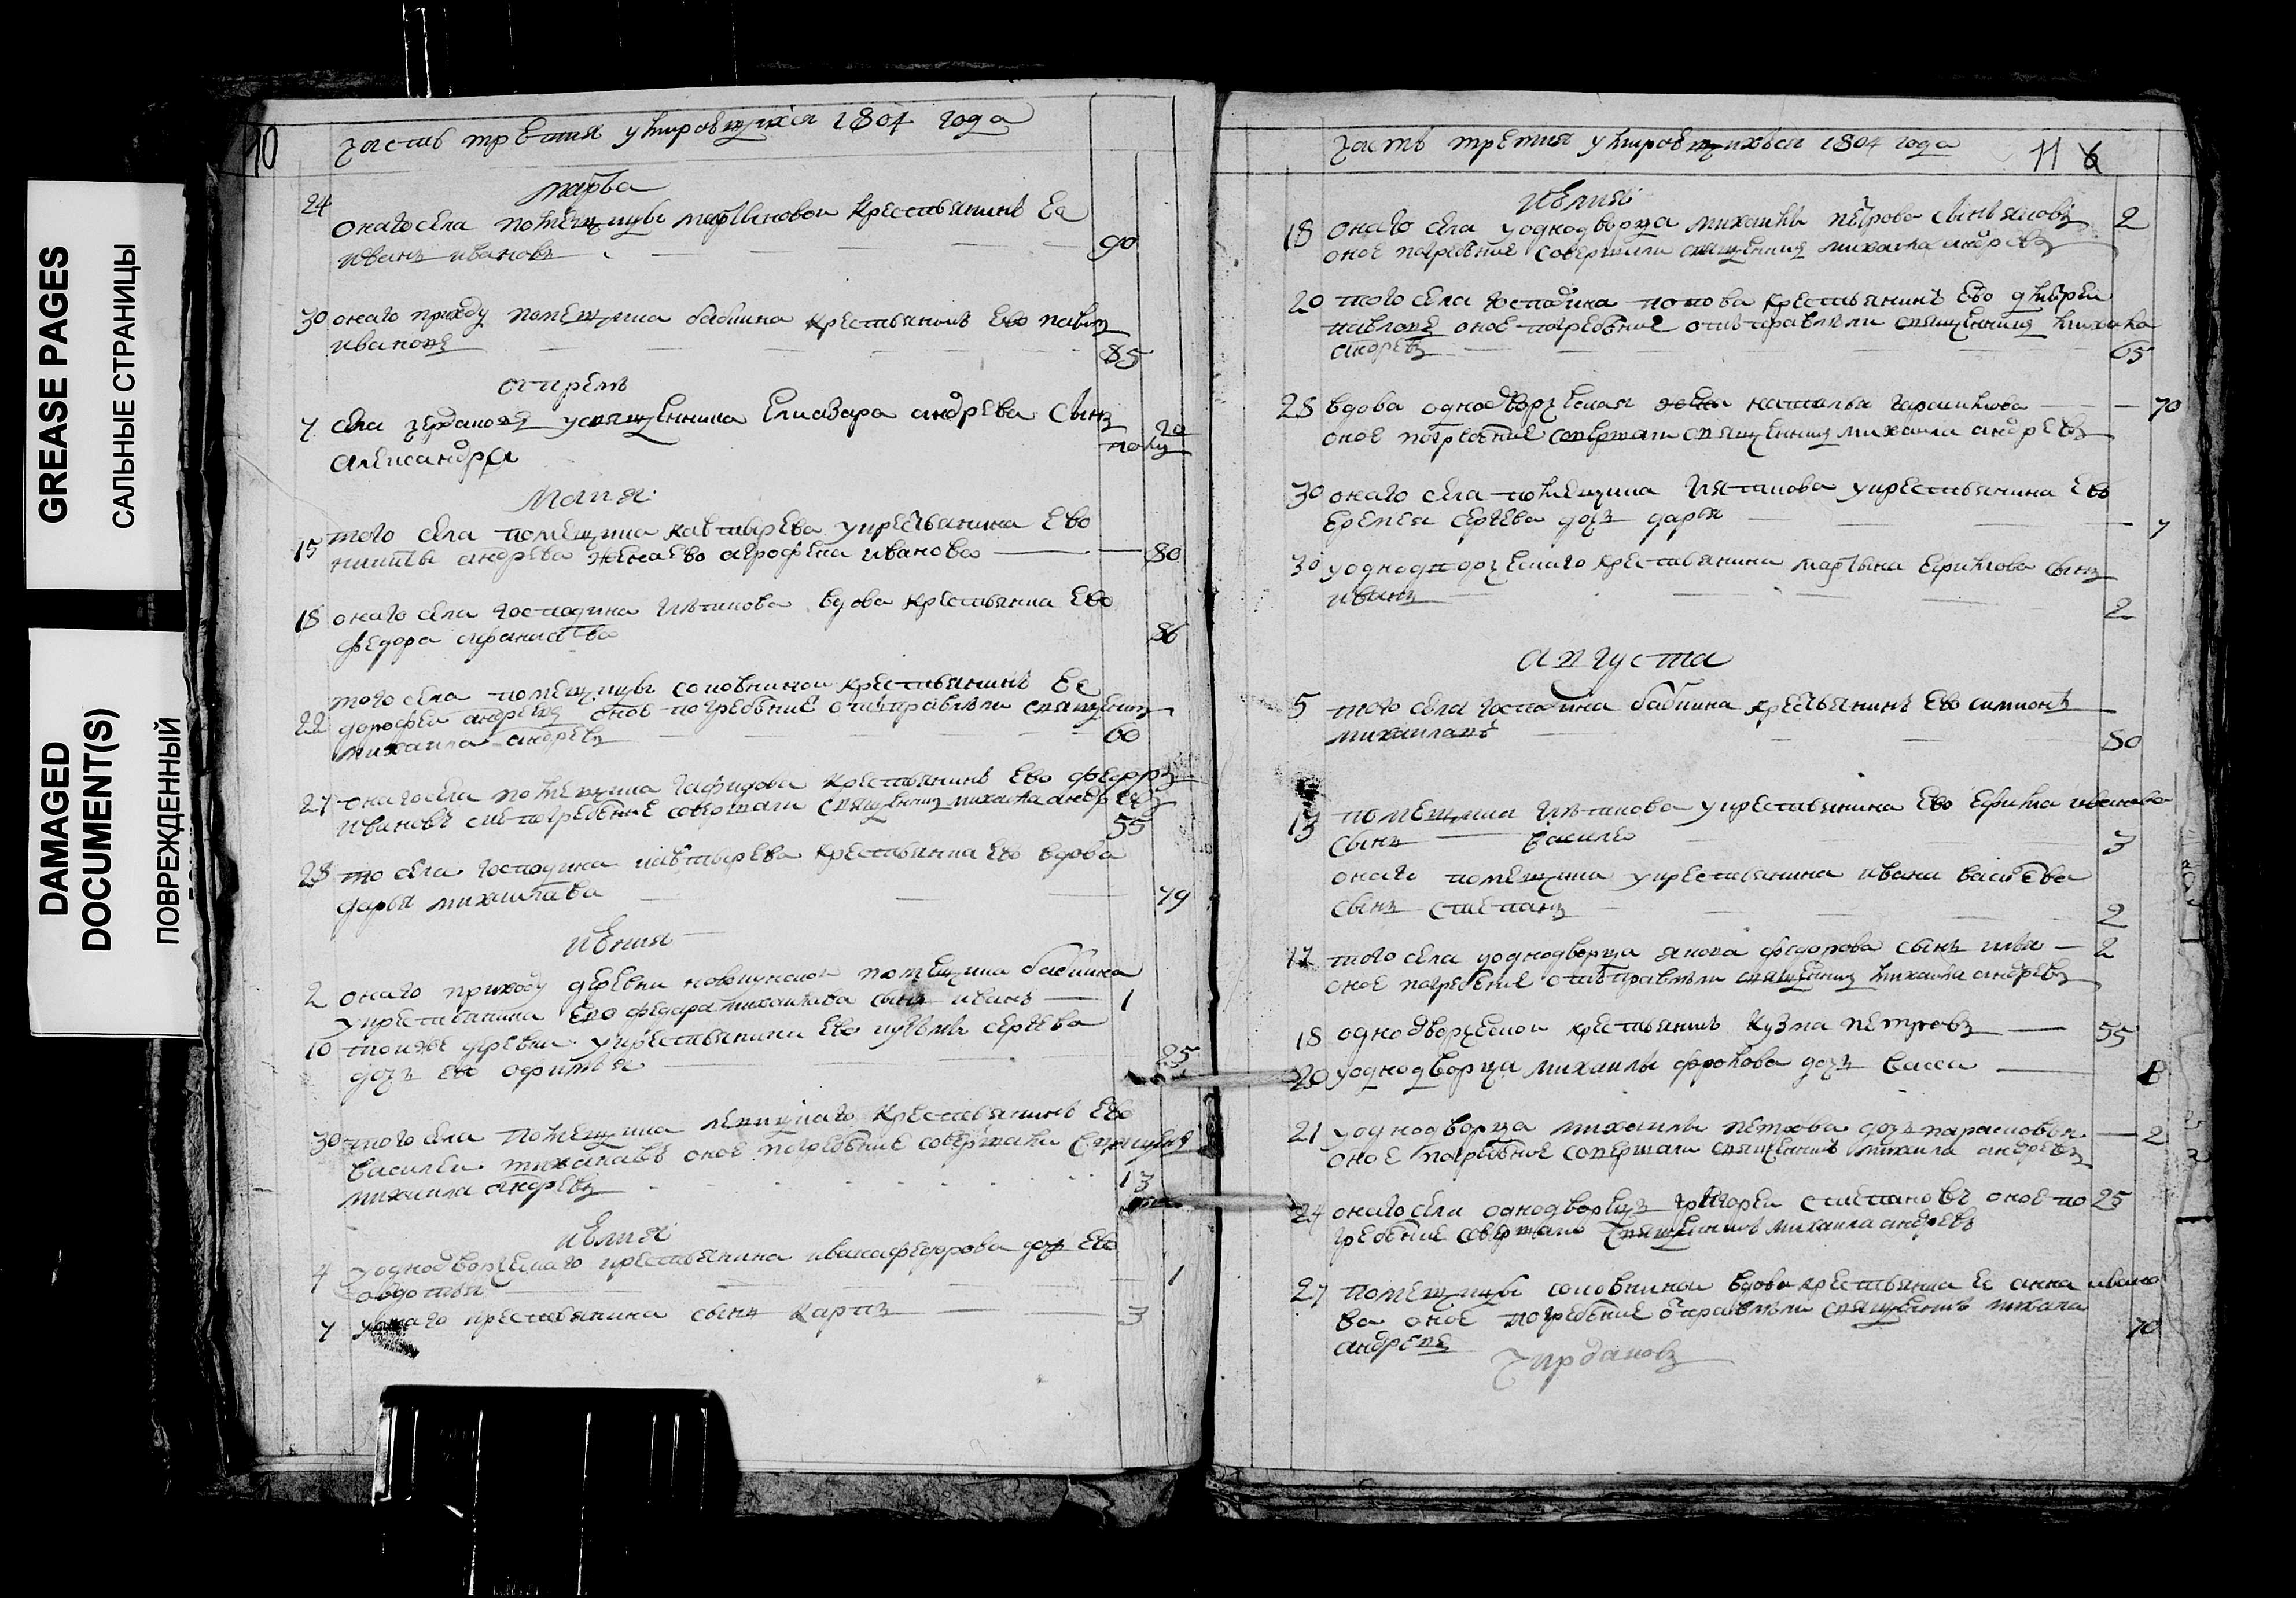 GREASE PAGES
САЛЬНЫЕ СТРАНИЦЫ
DAMAGED
DOCUMENT(S)
ПОВРЕЖДЕННЫЙ
10
часть третия умировшихся 1804 года
марта
24 онаго села помещицы мартыновой крестьянинъ еа
иванъ ивановъ 90
30 онаго приходу помещика бабкина крестьянинъ ево
ивановъ 85
апрель
7 села у священника Елиазара андреева сынъ 20
александра
маия
15 того села помещика у крестьянина ево
никиты андреева жена ево агрофена иванова 80
18 онаго села господина вдова крестьянка ево
86
того села помещицы крестьянинъ ее
22 дорофеи андреевъ оное погребение отправляли священикъ
михаила андреевъ 60
27 онаго села помещика крестьянинъ ево федоръ
ивановъ погребение совершали священикъ михаила андреевъ
55
28 то села господина крестьянка ево вдова
дарья михаилава 79
июния
2 онаго приходу деревни помещика бабкина
у крестьянина ево федара михаилава сынъ иванъ 1
10 тоиже деревни у крестьянина ево сергева
дочь ево 25
30 того села помещика крестьянинъ ево
василеи оное погребение совершали
михаила андреевъ 13
июлия
4 у однодворческаго крестьянина ивана федорова дочь ево
авдотья 1
7 у онаго крестьянина сынъ карпъ 3
часть третия умировшихся 1804 года
11 6
июлия
18 онаго села у однодворца михаилы петрова сынъ яковъ 2
оное погребение совершали священникъ михаила андреевъ
20 того села господина попова крестьянинъ ево дмитреи
павловъ оное погребение отправляли священникъ михаила
андреевъ 65
25 вдова однодворческая наталья 70
оное погребение совершали священникъ михаила андреевъ
30 онаго села помещика у крестьянина ево
еремея сергева дочь дарья 7
30 у однодворческаго крестьянина мартына сынъ
иванъ 2
августа
5 того села господина бабкина крестьянинъ ево симионъ
михаилавъ 80
13 помещика у крестьянина ево ефима иванова
сынъ василеи 3
онаго помещика у крестьянина ивана василева
сынъ степанъ 2
17 того села у однодворца якова федорова сынъ илья 2
оное погребение отправляли священникъ михаила андреевъ
18 однодворческои крестьянинъ кузма петровъ 55
20 у однодворца михаилы фролова дочь васса 8
21 у однодворца михаилы петрова дочь парасковея 2
оное погребение совершали священникъ михаила андреевъ
24 онаго села однодворецъ григореи степановъ оное по 25
гребение совершали священникъ михаила андреевъ
27 помещицы вдова крестьянка ее анна ивано
ва оное погребение отправляли священникъ михаила
андреевъ 70